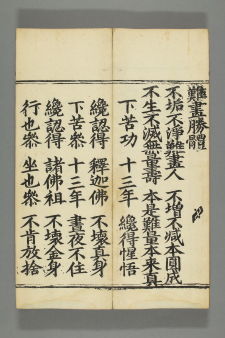 難畫勝體
不垢不淨難畫人　不增不減本圓成
不生不滅無量壽　本是難量本来真
下苦功　十三年　纔得惺悟
纔認得　釋迦佛　不壞真身
下苦叅　十三年　晝夜不住
纔認得　諸佛祖　不壞金身
行也叅　坐也叅　不肯放捨